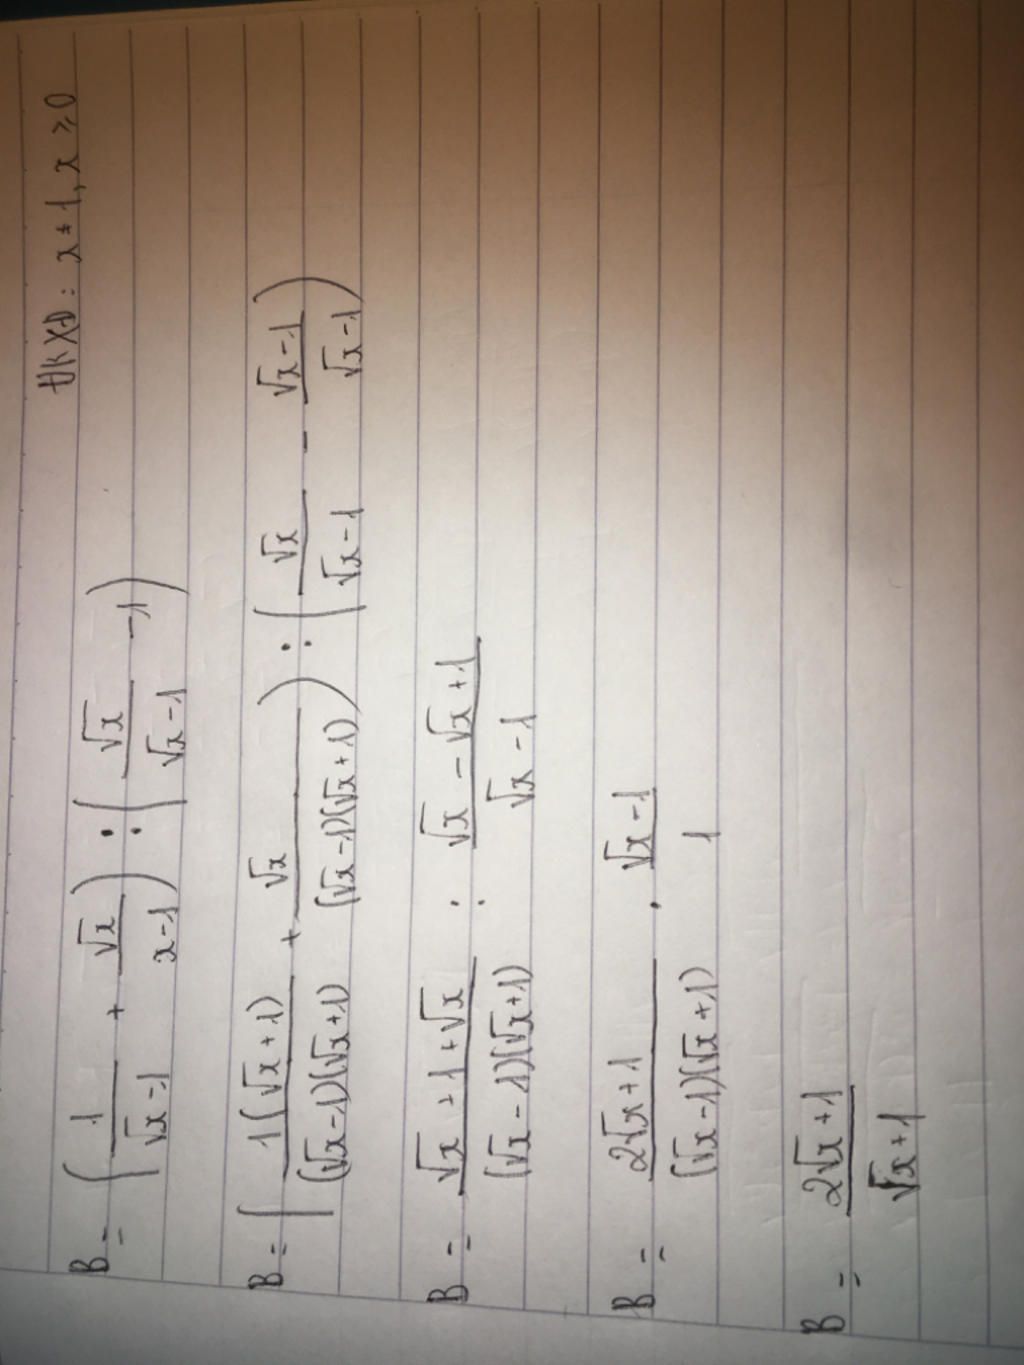 ĐKXĐ: x ≠ 1, x ≥ 0
B = (1/(√x-1) + √x/(x-1)) : (√x/(√x-1) - 1)
B = (1(√x+1)/((√x-1)(√x+1)) + √x/((√x-1)(√x+1))) : (√x/(√x-1) - (√x-1)/(√x-1))
B = (√x+1+√x)/((√x-1)(√x+1)) : (√x-√x+1)/(√x-1)
B = (2√x+1)/((√x-1)(√x+1)) . (√x-1)/1
B = (2√x+1)/(√x+1)